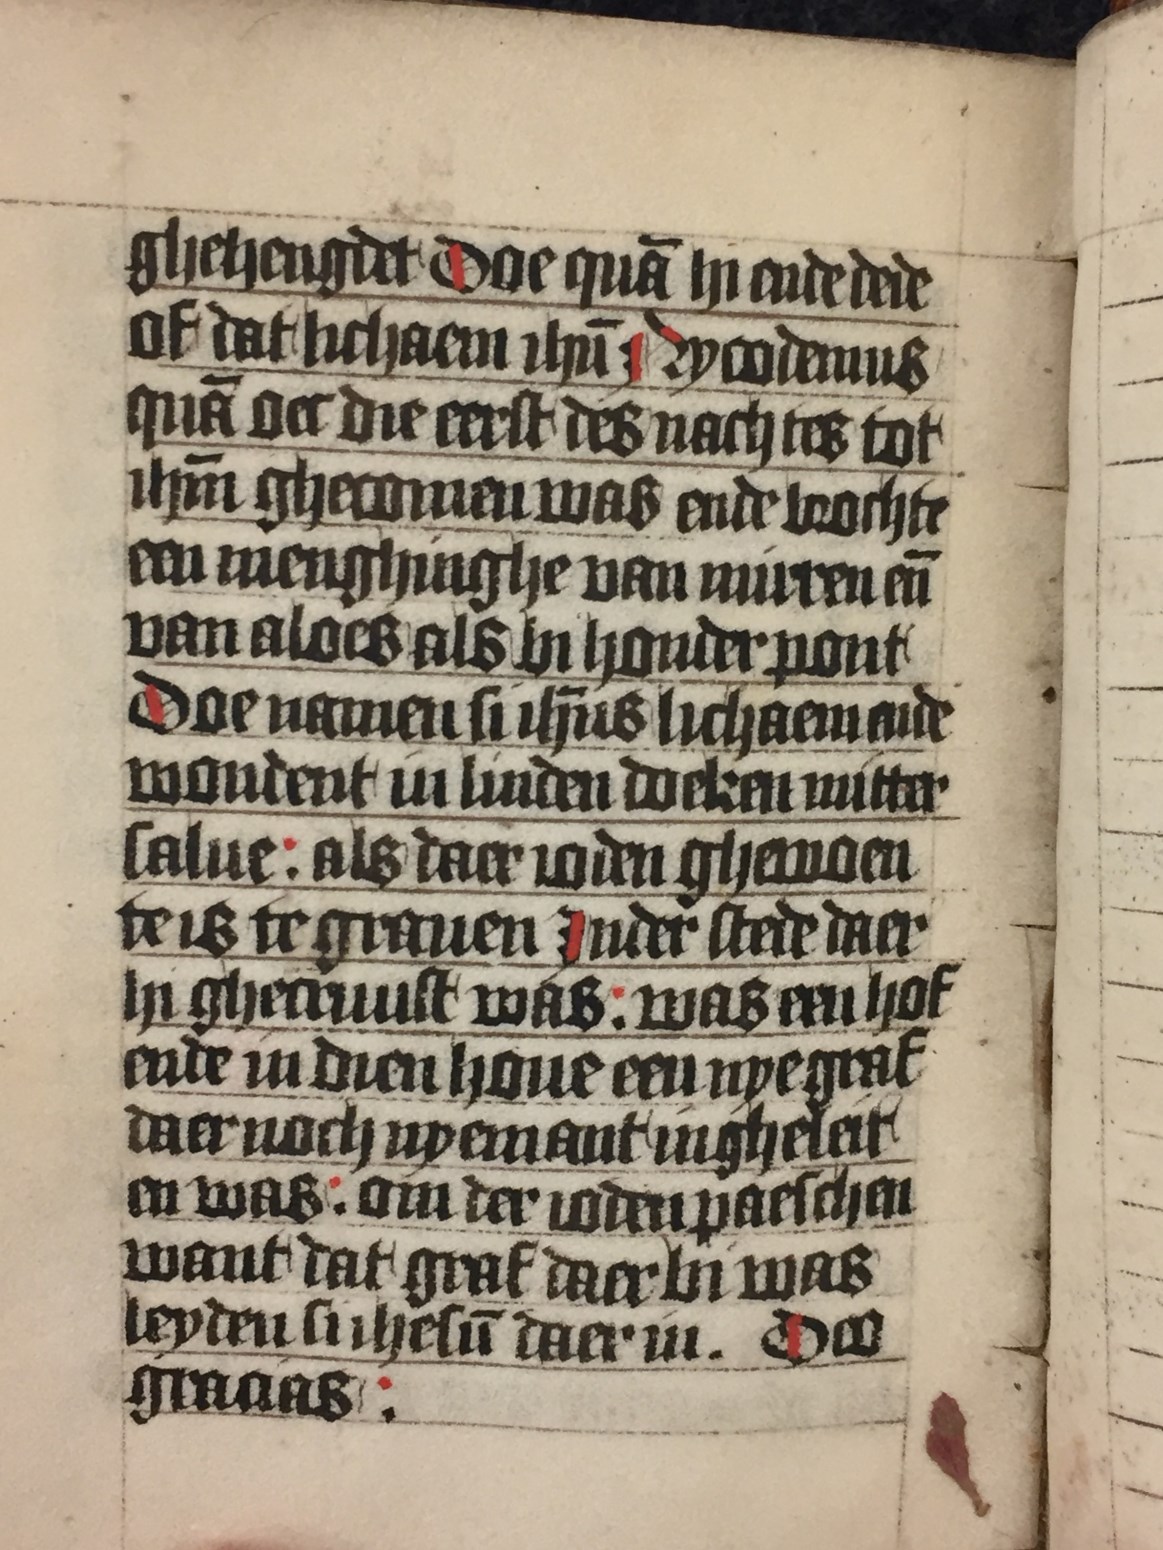 ghehengdet Doe quā hi ende dede
of dat lichaem ihū Nycodemus
quā oec die eerst des nachtes tot
ihm̄ ghecomen was ende brochte
een menghinghe van mirren en̄
van aloes als bi honder pont
Doe namen si ih̄us lichaem ende
wondent in linden doeken mitter
salue : als daer ioden ghewoen
te is te grauen Inder stede daer
hi ghecruust was : was een hof
ende in dien houe een nye graf
daer noch nyemant ingheleit
en was : om der ioden paeschen
want dat graf daer bi was
leyden si ihesū daer in . Deo
gracias :